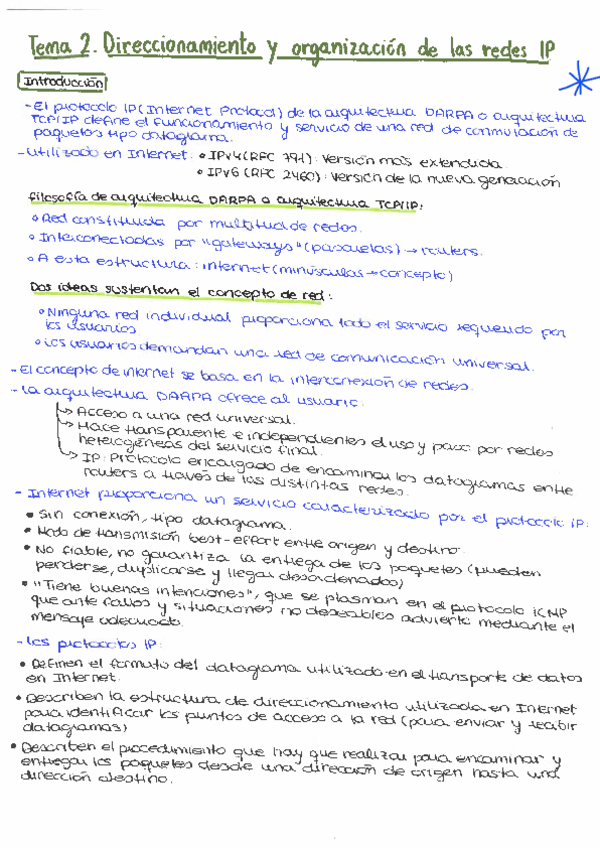 Tema 2. Direccionamiento y organización de las redes IP
Introducción
- El protocolo IP (Internet Protocol) de la arquitectura DARPA o arquitectura
TCP/IP define el funcionamiento y servicio de una red de conmutación de
paquetes tipo datagrama.
- Utilizado en Internet: • IPv4 (RFC 791): Versión más extendida
• IPv6 (RFC 2460): Versión de la nueva generación
Filosofía de arquitectura DARPA o arquitectura TCP/IP:
• Red constituida por multitud de redes.
• Interconectadas por "gateways" (pasarelas) → routers.
• A esta estructura: internet (minúsculas → concepto)
Dos ideas sustentan el concepto de red:
• Ninguna red individual proporciona todo el servicio requerido por
los usuarios
• Los usuarios demandan una red de comunicación universal.
- El concepto de internet se basa en la interconexión de redes.
- La arquitectura DARPA ofrece al usuario:
↳ Acceso a una red universal.
↳ Hace transparente e independientes el uso y paso por redes
heterogéneas del servicio final.
↳ IP: Protocolo encargado de encaminar los datagramas entre
routers a través de las distintas redes.
- Internet proporciona un servicio caracterizado por el protocolo IP:
• Sin conexión, tipo datagrama.
• Modo de transmisión best-effort entre origen y destino.
• No fiable, no garantiza la entrega de los paquetes (pueden
perderse, duplicarse y llegar desordenados)
• "Tiene buenas intenciones", que se plasman en el protocolo ICMP
que ante fallos y situaciones no deseables advierte mediante el
mensaje adecuado.
- Los protocolos IP:
• Definen el formato del datagrama utilizado en el transporte de datos
en Internet.
• Describen la estructura de direccionamiento utilizada en Internet
para identificar los puntos de acceso a la red (para enviar y recibir
datagramas)
• Describen el procedimiento que hay que realizar para encaminar y
entregar los paquetes desde una dirección de origen hasta una
dirección destino.